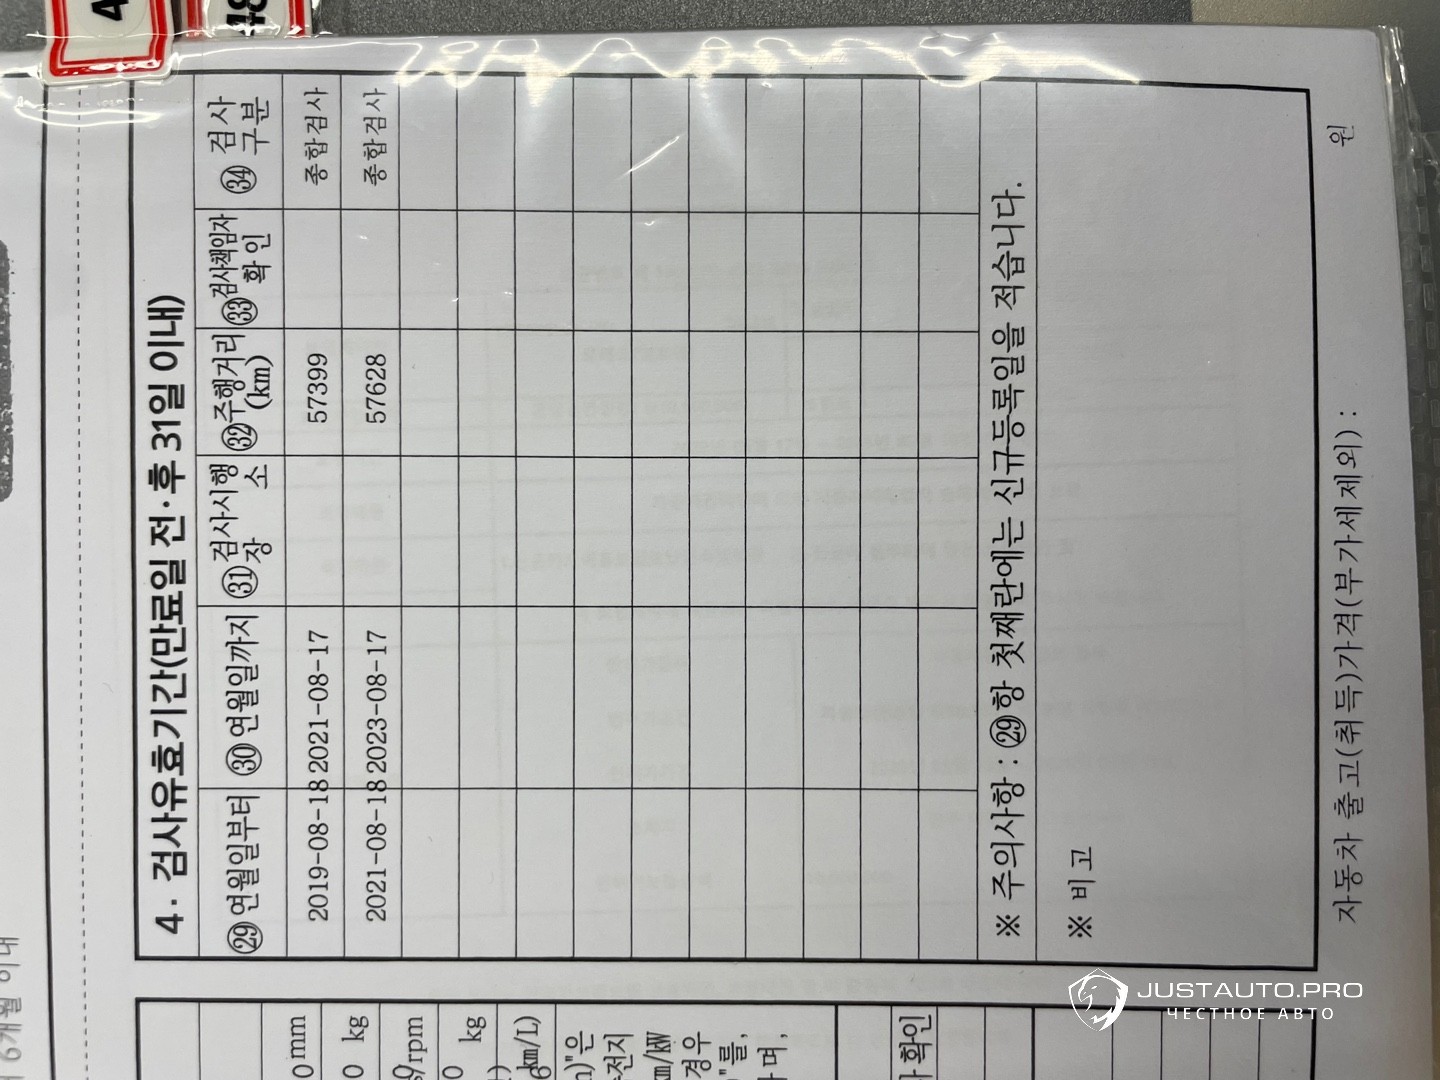 4. 검사유효기간(만료일 전·후 31일 이내)
㉙연월일부터 ㉚연월일까지 ㉛검사시행장소 ㉜주행거리(km) ㉝검사책임자확인 ㉞검사구분
2019-08-18 2021-08-17 57399 종합검사
2021-08-18 2023-08-17 57628 종합검사
※ 주의사항 : ㉙항 첫째란에는 신규등록일을 적습니다.
※ 비고
자동차 출고(취득)가격(부가세제외) : 원
6개월 이내
0mm
0 kg
/rpm
0 kg
km/L)
)"은
전지
km/kW
경우
"를,
며,
확인
JUSTAUTO.PRO
ЧЕСТНОЕ АВТО